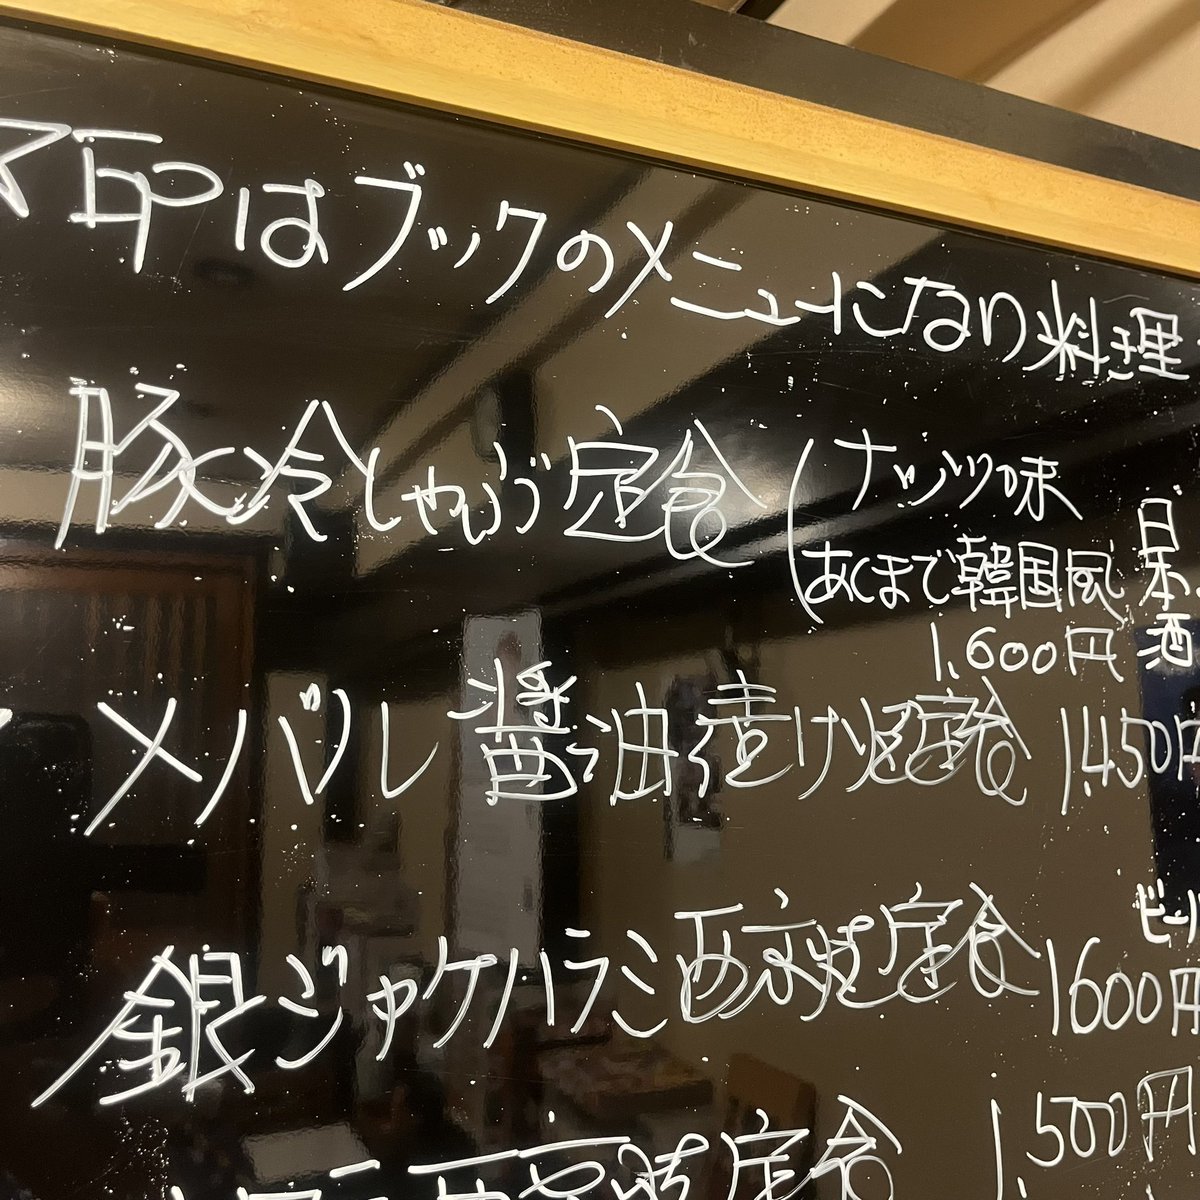 印はブックのメニューになり料理
豚冷しゃぶ定食
(ナッツ味
あくまで韓国風
1.600円
日本酒
メバル醤油漬け焼定食 1.450円
ビール
銀ジャケハラミ西京焼定食 1600円
西京焼定食 1.500円